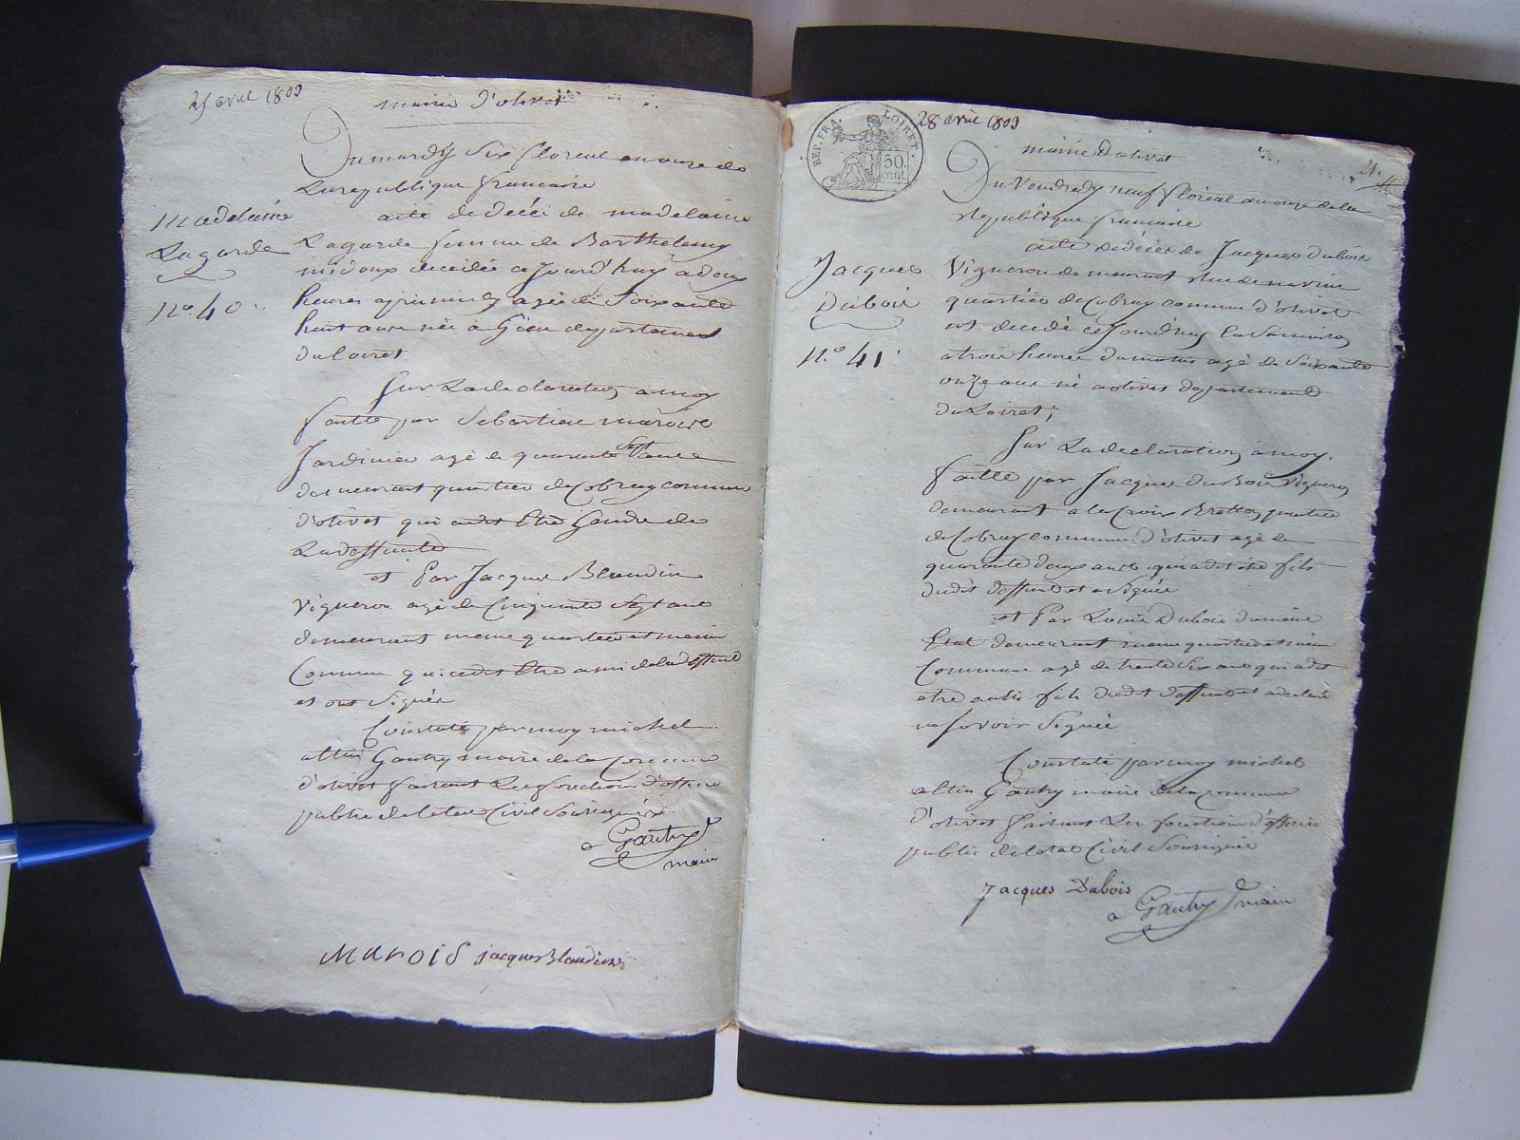 25 avril 1803
mairie d'olivet
Du mardy six floreal an onze de
La republique francaise
Madelaine
Lagarde
n.o 40
acte de décé de madelaine
Lagarde femme de Barthelemy
decedée ce jourd'huy a deux
heures apres midy agée de soixante
huit ans née a Gien departement
du loiret
Sur La declaration a moy
faitte par Sebastien marois
Jardinier agé de quarante sept ans
demeurant quartier de Cobray commune
d'olivet qui a dit être Gendre de
La deffunte
et Par Jacque Blandin
vigneron agé de Cinquante Sept ans
demeurant meme quartier et meme
Commune qui a dit être ami de la deffunte
et ont Signée
Constaté par moy michel
altin Gautry maire de la commune
d'olivet faisant Les fonctions d'officier
public de letat Civil Soussignée
a Gautry
maire
Marois jacques Blandin
REP. FRA. LOIRET
50 cent.
28 avril 1803
mairie d'olivet
41
Du Vendredy neuf floréal an onze de la
Republique francaise
Jacques
Dubois
n.o 41
acte de décès de Jacques Dubois
Vigneron demeurant
quartier de Cobray commune d'olivet
est decedé ce jourd'huy
a trois heures du matin agé de Soixante
onze ans né a olivet departement
du Loiret;
Sur La declaration a moy
faitte par Jacques Dubois vigneron
demeurant a la Croix Bretton quartier
de Cobray commune d'olivet agé de
quarante deux ans qui a dit etre fils
dudit deffunt et a Signée
et Par Louis Dubois du même
Etat demeurant meme quartier et meme
Commune agé de trente six ans qui a dit
etre aussi fils dudit deffunt et a declaré
ne savoir Signée
Constaté par moy michel
altin Gautry maire de la commune
d'olivet faisant Les fonctions d'officier
public de letat Civil Soussignée
Jacques Dubois
a Gautry maire